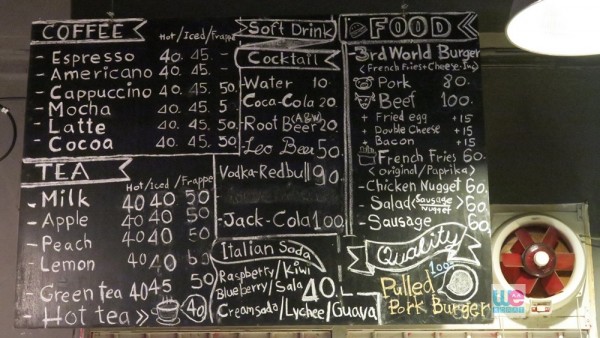 COFFEE Hot/Iced/Frappe
- Espresso 40. 45. -
- Americano 40. 45. -
- Cappuccino 40. 45. 50.
- Mocha 40. 45. 5
- Latte 40. 45. 50.
- Cocoa 40. 45. 50.
TEA Hot/Iced/Frappe
- Milk 40 40 50
- Apple 40 40 50
- Peach 40 40 50
- Lemon 40
- Green tea 40 45 50
- Hot tea >> 40
Soft Drink
Cocktail
- Water 10.
- Coca-Cola 20.
- Root Beer (A&W) 20.
- Leo Beer 50.
Vodka-Redbull 90.
- Jack-Cola 100.
Italian Soda
Raspberry/Kiwi
Blueberry/Sala 40.
Creamsoda/Lychee/Guava
FOOD
- 3rd World Burger
<French Fries+Cheese-In>
Pork 80.
Beef 100.
+ Fried egg +15
+ Double Cheese +15
+ Bacon +15
French Fries 60.
<Original/Paprika>
- Chicken Nugget 60.
- Salad <Sausage Nugget> 60.
- Sausage 60.
Quality
100%
Pulled
Pork Burger